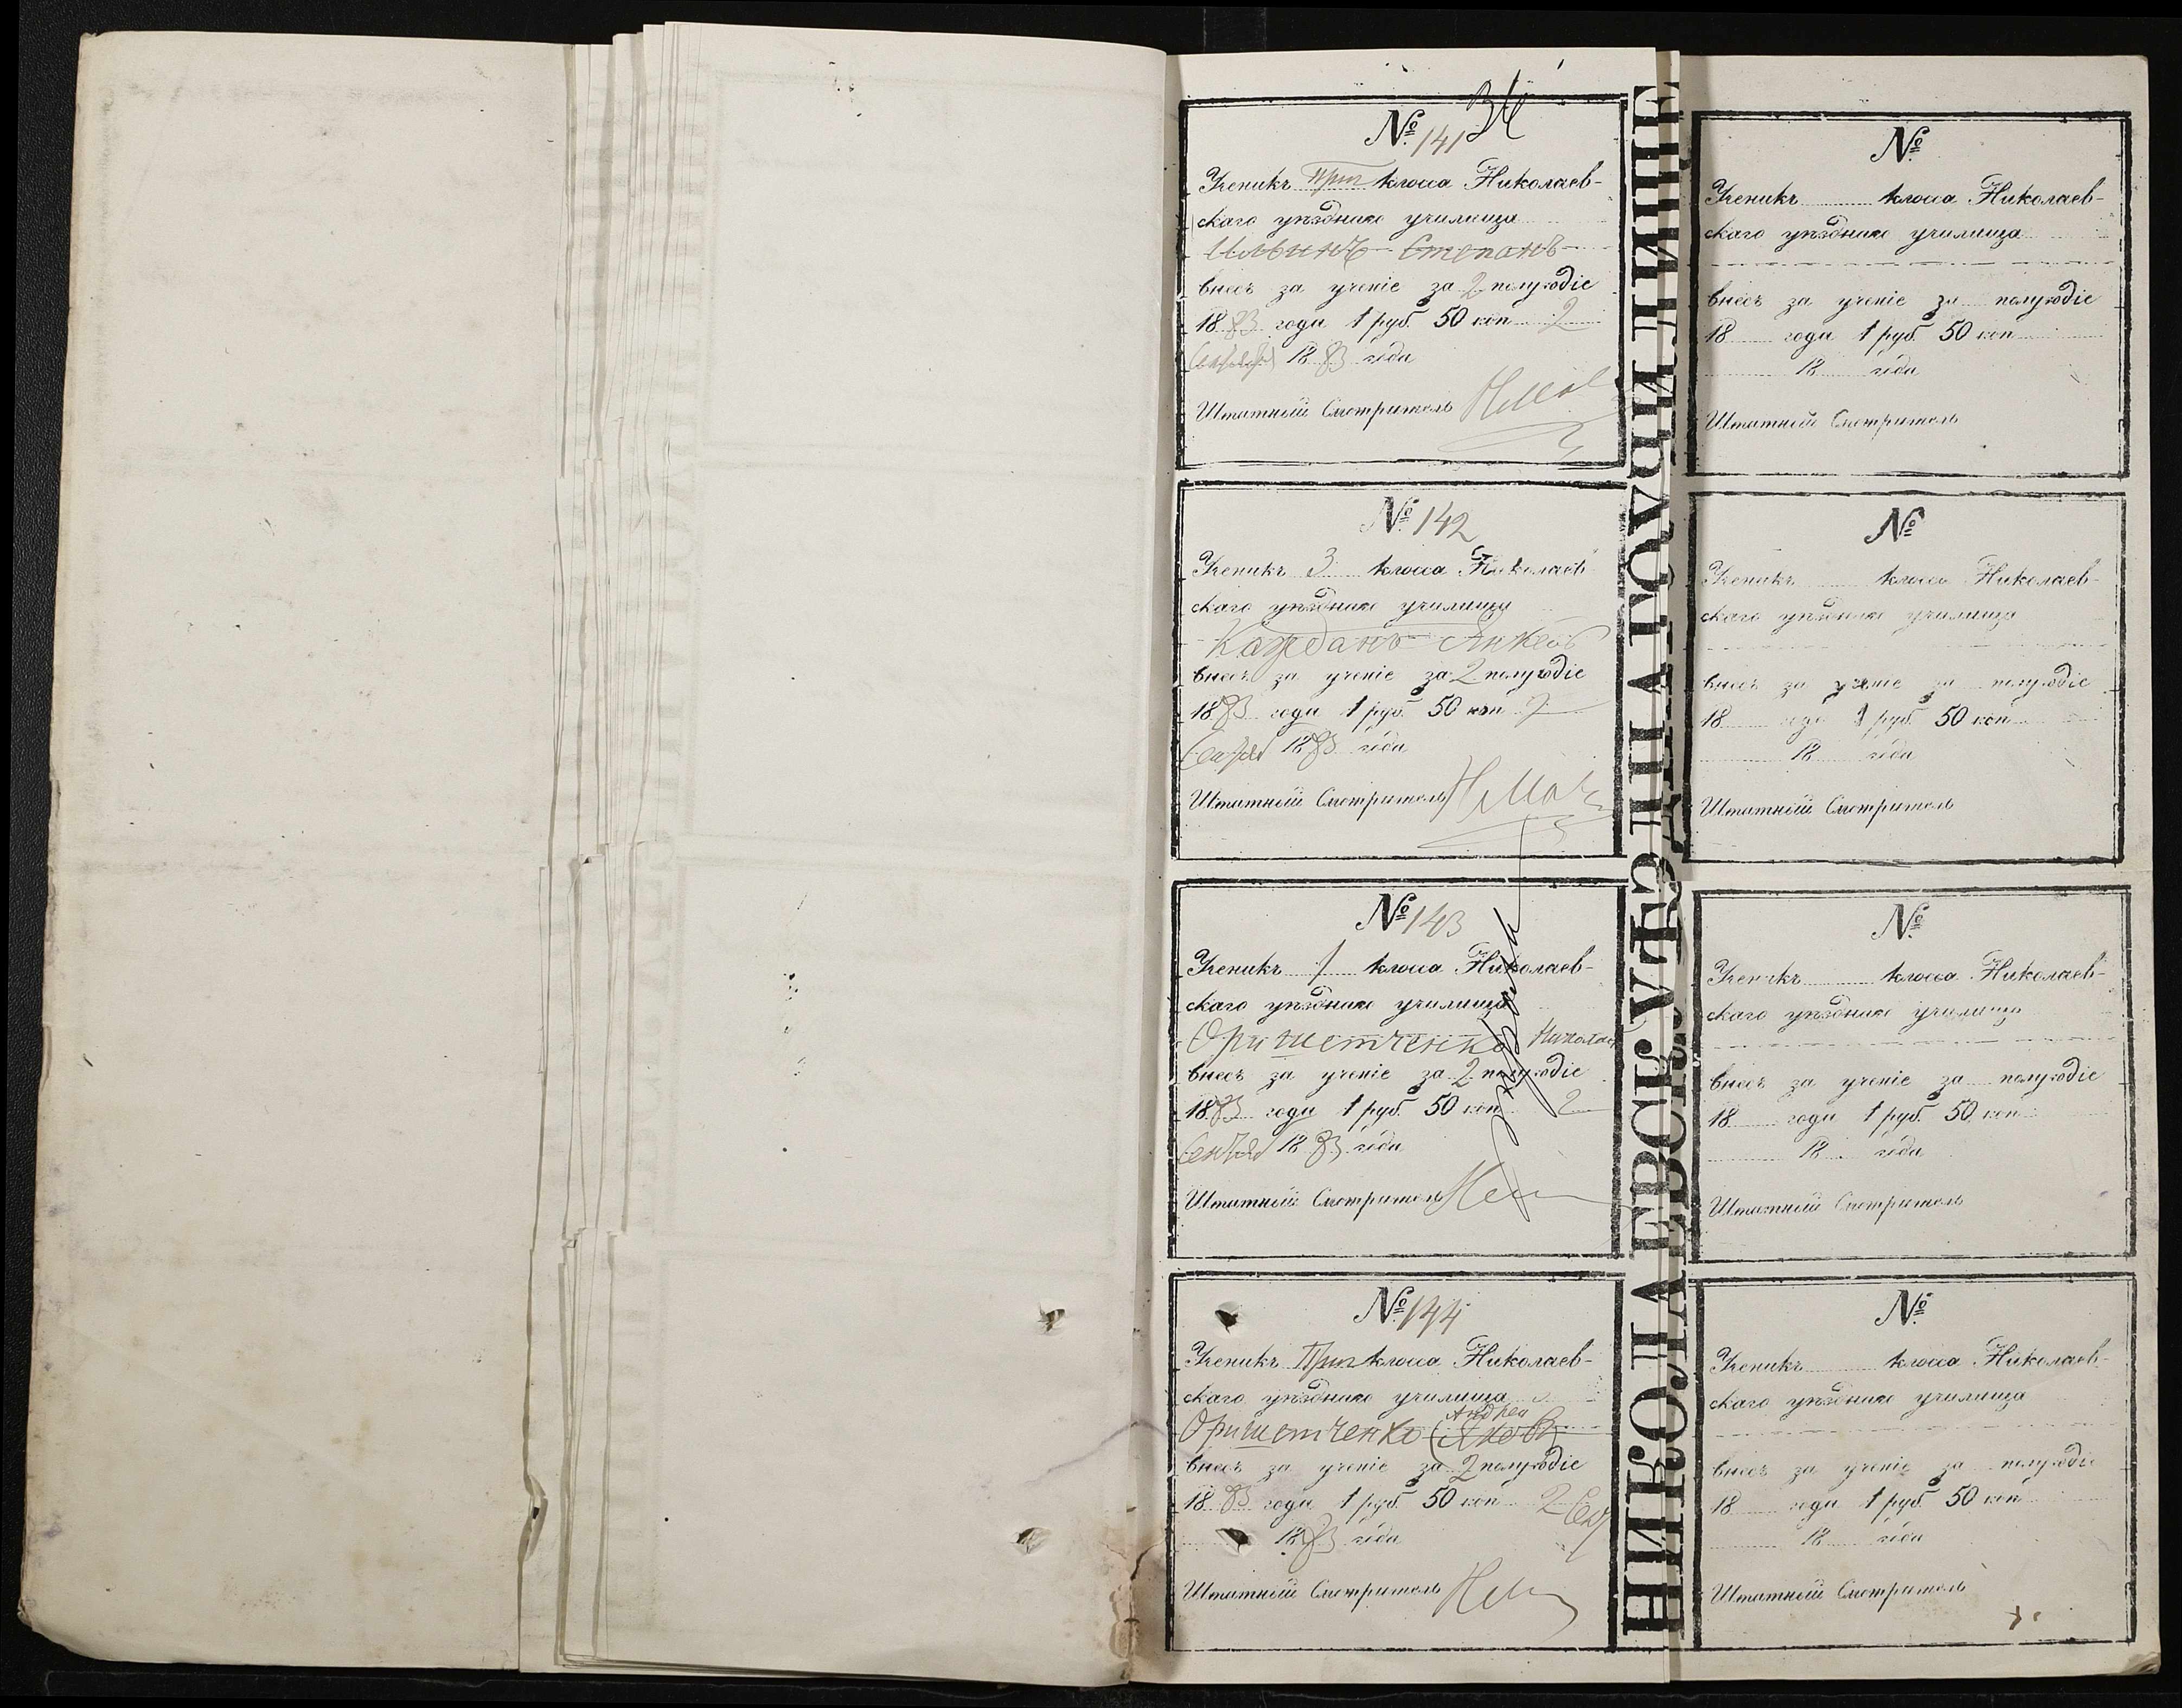 34
№ 141
Ученикъ Приг класса Николаев-
скаго уѣзднаго училища
Ильинъ Степанъ
внесъ за ученіе за 2 полугодіе
1883 года 1 руб. 50 коп 2
Сентября 1883 года
Штатный Смотритель
№ 142
Ученикъ 3 класса Николаев-
скаго уѣзднаго училища
Каждань Янкель
внесъ за ученіе за 2 полугодіе
1883 года 1 руб. 50 коп 2
1883 года
Штатный Смотритель
№ 143
Ученикъ 1 класса Николаев-
скаго уѣзднаго училища
Оришетченко Николай
внесъ за ученіе за 2 полугодіе
1883 года 1 руб. 50 коп 2
1883 года
Штатный Смотритель
№ 144
Ученикъ Приг класса Николаев-
скаго уѣзднаго училища
Андрей
Оришетченко (Яковъ)
внесъ за ученіе за 2 полугодіе
1883 года 1 руб. 50 коп 2 Сент
1883 года
Штатный Смотритель
НИКОЛАЕВСК. УѢЗД
УЧИЛИЩЕ
№
Ученикъ класса Николаев-
скаго уѣзднаго училища
внесъ за ученіе за полугодіе
18 года 1 руб. 50 коп
18 года
Штатный Смотритель
№
Ученикъ класса Николаев-
скаго уѣзднаго училища
внесъ за ученіе за полугодіе
18 года 1 руб. 50 коп
18 года
Штатный Смотритель
№
Ученикъ класса Николаев-
скаго уѣзднаго училища
внесъ за ученіе за полугодіе
18 года 1 руб. 50 коп
18 года
Штатный Смотритель
№
Ученикъ класса Николаев-
скаго уѣзднаго училища
внесъ за ученіе за полугодіе
18 года 1 руб. 50 коп
18 года
Штатный Смотритель